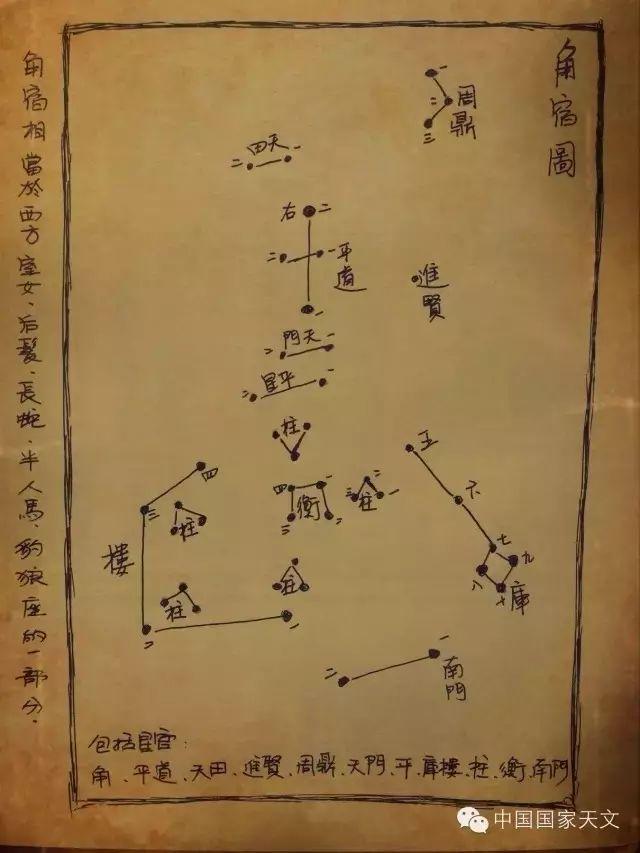 角宿圖
角宿相當於西方室女、后髮、長蛇、半人馬、豺狼座的一部分.
一
二
周鼎
三
二 田天 一
右 二
二 一
平道
進賢
一
二 門天 一
二 星平 一
柱
五
四
四 一
二
三 柱 一
三
柱
三 衡 二
六
樓
七
九
柱
柱
八
十 庫
二
一
一
二
南門
包括星官:
角、平道、天田、進賢、周鼎、天門、平、庫樓、柱、衡、南門
中国国家天文